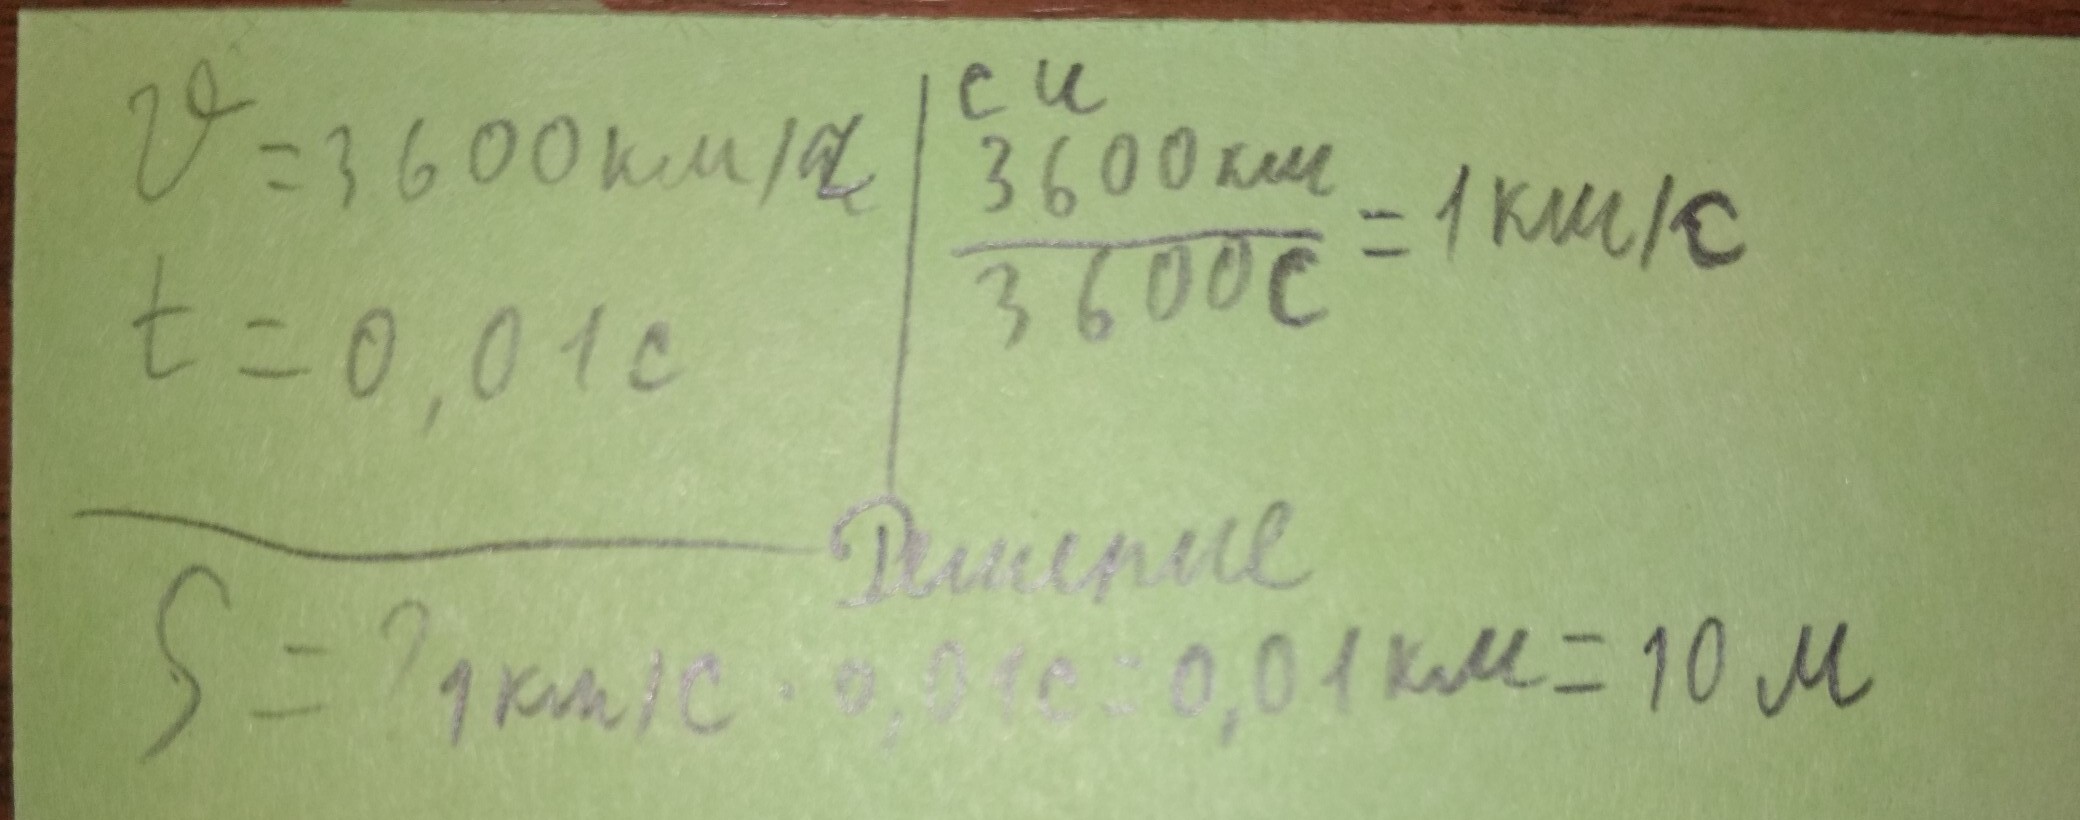 𝜗=3600км/ч
t=0,01с
си
3600км
3600с
=1км/с
Решение
S=?
1км/с·0,01с=0,01км=10м